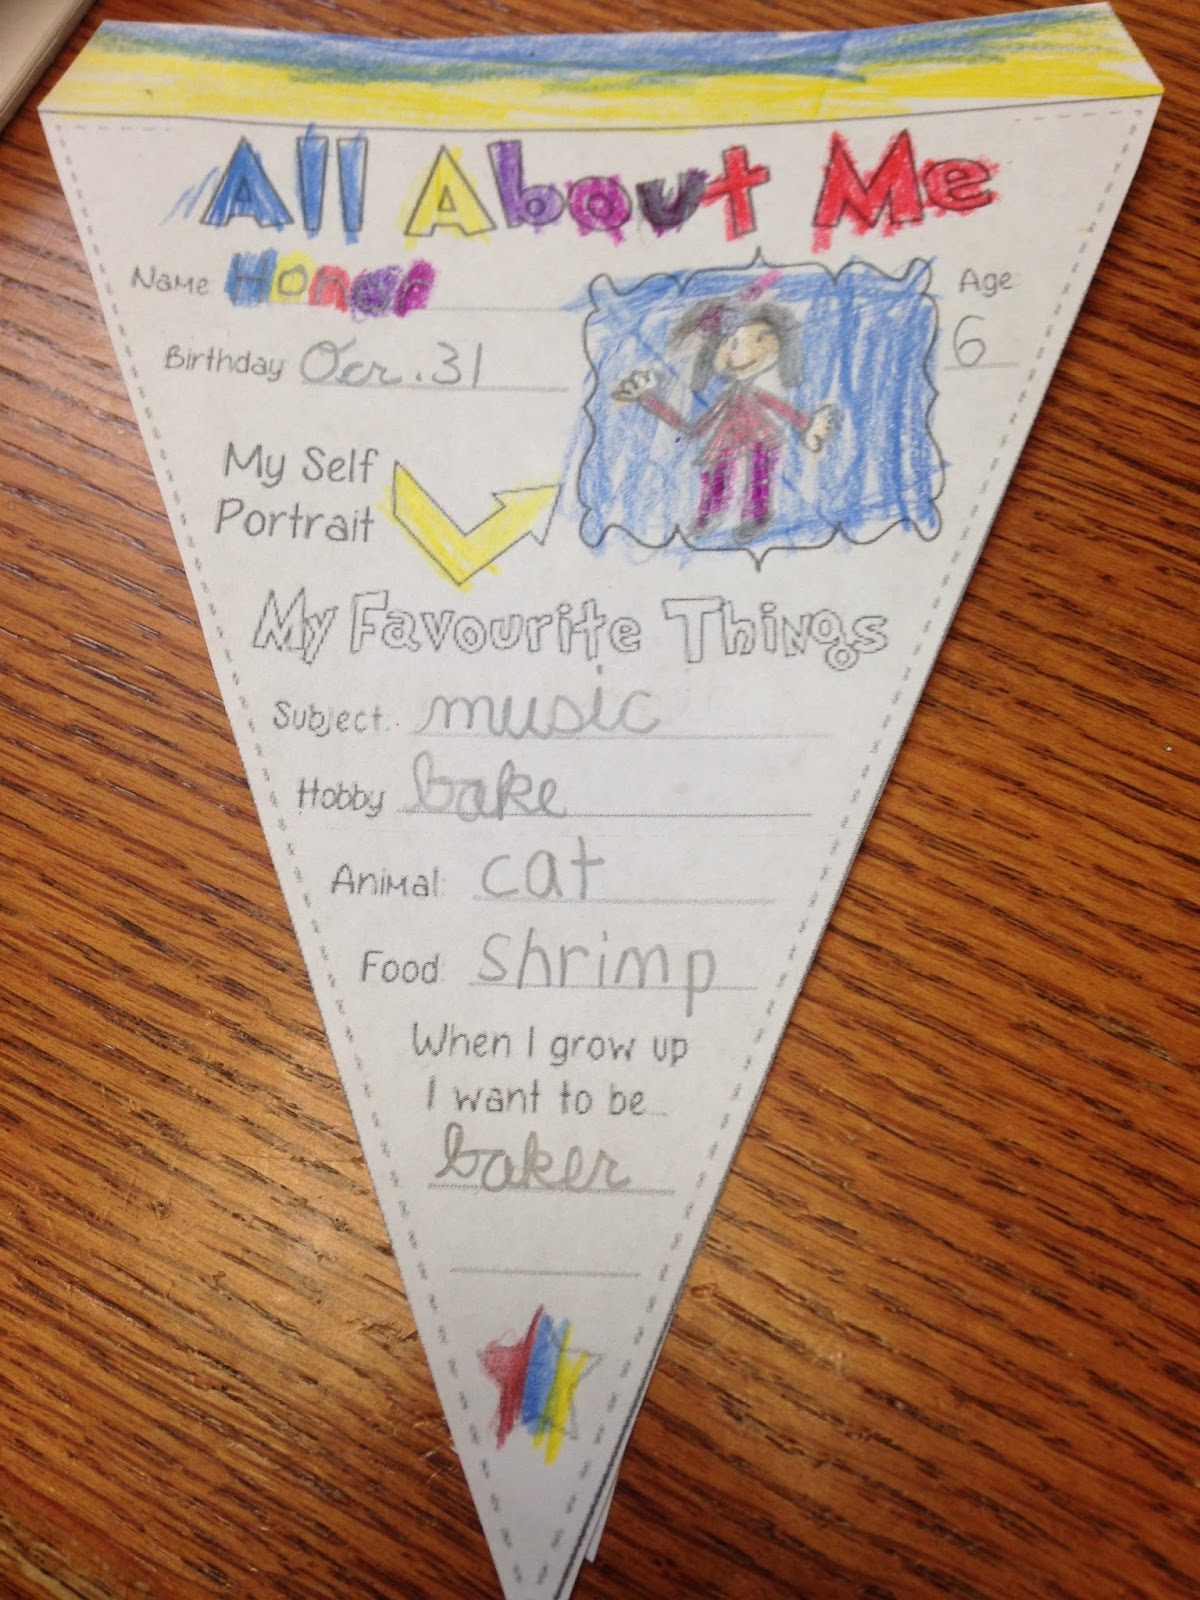 All About Me
Name Honor
Age
6
Birthday Oct. 31
My Self
Portrait
My Favourite Things
Subject: music
Hobby bake
Animal: cat
Food: shrimp
When I grow up
I want to be...
baker